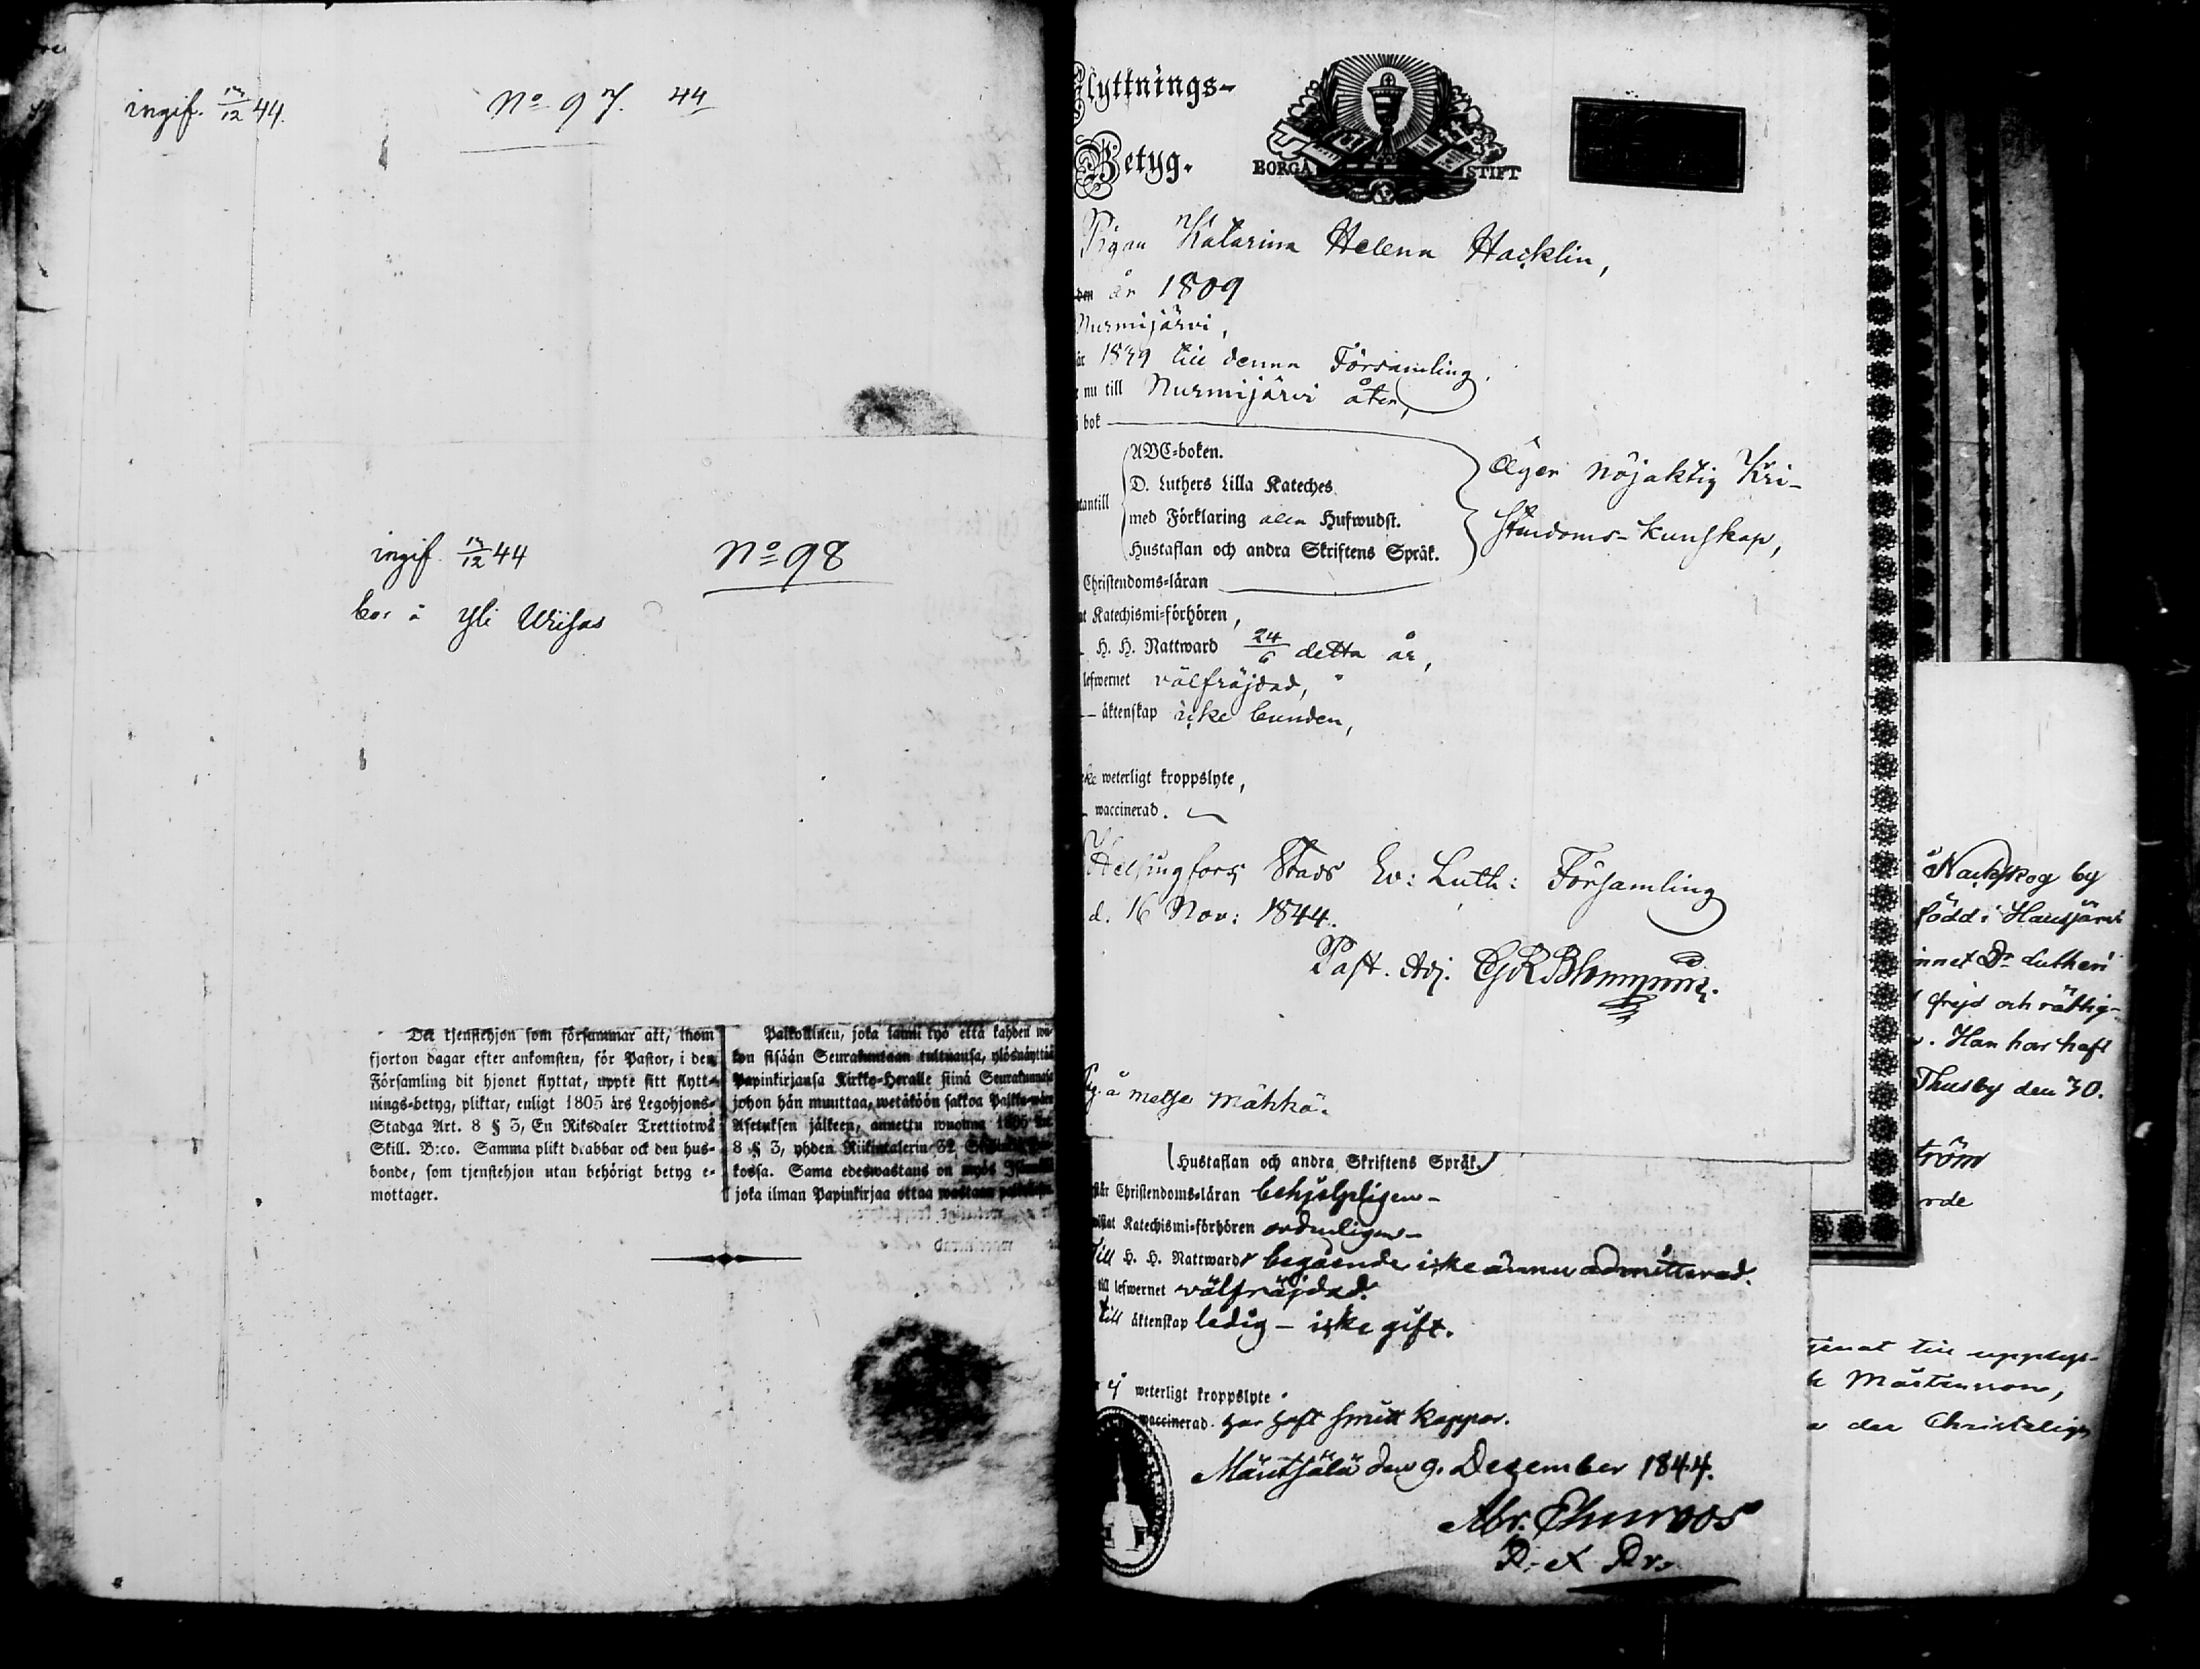 ingif. 44.
No 97. 44
ingif. 44
No 98
bor å Yli Uusas
Det tjenstehjon som försummar att, inom
fjorton dagar efter ankomsten, för Pastor, i den
Församling dit hjonet flyttat, uppte sitt flytt-
nings-betyg, pliktar, enligt 1805 års Legohjons-
Stadga Art. 8 § 3, En Riksdaler Trettiotwå
Skill. B:co. Samma plikt drabbar ock den hus-
bonde, som tjenstehjon utan behörigt betyg e-
mottager.
Palkollinen, joka laimi lyö että kahden wii-
kon sisään Seurakuntaan tultuansa, ylösnäyttää
Papinkirjansa Kirkko-Herralle siinä Seurakunnassa
johon hän muuttaa, wetäköön sakkoa Palkka-wäen
Asetuksen jälkeen, annettu wuonna 1805
8 § 3, yhden Riikintalerin 32
kossa. Sama edeswastaus on myös
joka ilman Papinkirjaa ottaa wastaan
Flyttnings-
Betyg.
BORGÅ STIFT
Pigan Katarina Helena Hacklin,
den år 1809
Nurmijärvi,
år 1839 till denna Församling,
nu till Nurmijärvi åter,
bok
ABC-boken.
D. Luthers Lilla Kateches
med Förklaring alla Hufwudst.
Hustaflan och andra Skriftens Språk.
Äger nöjaktig Kri-
stendoms-kunskap,
utantill
Christendoms-läran
Katechismi-förhören,
H. H. Nattward 24/6 detta år,
lefwernet välfräjdad,
äktenskap icke bunden,
icke weterligt kroppslyte,
waccinerad.
Helsingfors Stads Ev: Luth: Församling
d. 16 Nov: 1844.
Past. Adj.
å metse Mähkä.
Hustaflan och andra Skriftens Språk.
Christendoms-läran behjelpligen
Katechismi-förhören ordenligen
Till H. H. Nattwards begående icke ännu admitterad.
till lefwernet välfräjdad.
till äktenskap ledig – icke gift.
ej weterligt kroppslyte
waccinerad. har haft smitt koppor.
Mäntsälä den 9. December 1844.
Abr.
P. et Pr.
å Nackskog by
född i Hausjärvi
innet Dr Lutheri
frejd och rättig-
. Han har haft
Thusby den 30.
tröm
rde
tjenat till
Mårtensson,
den Christelig